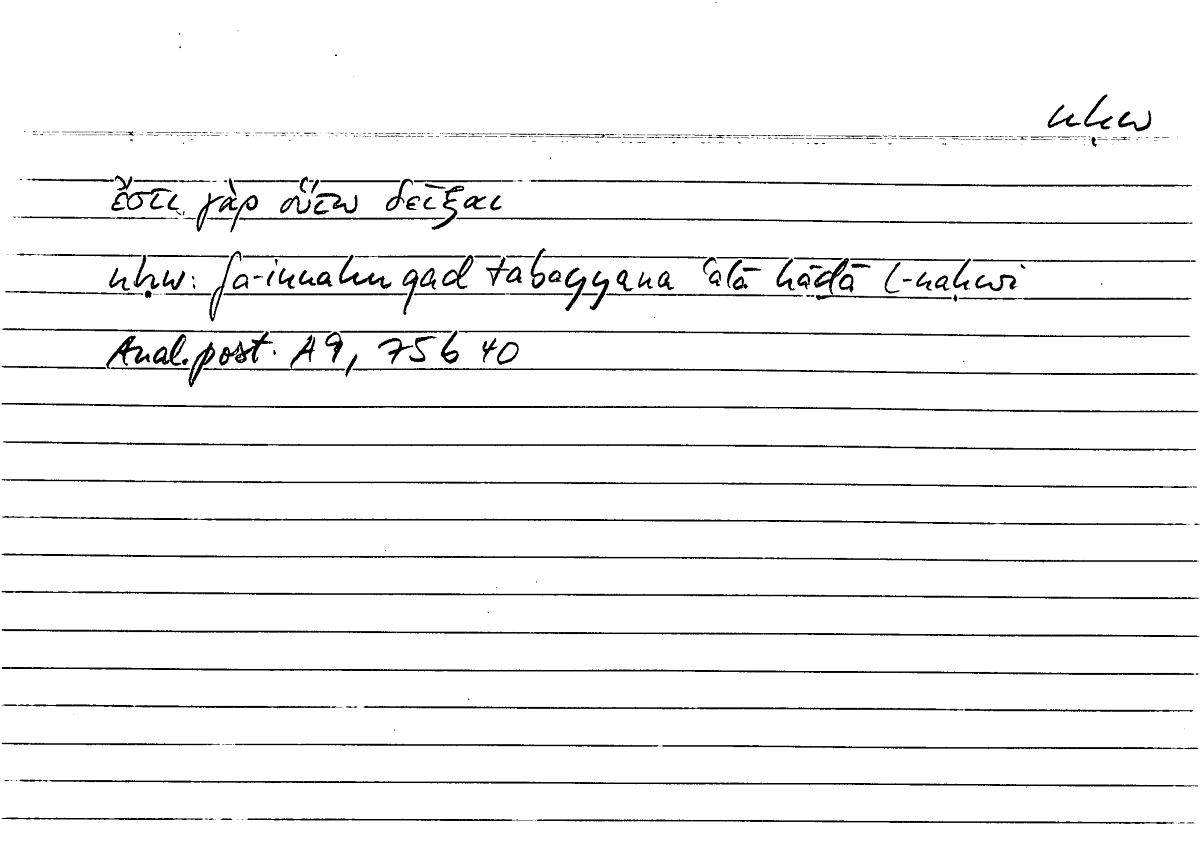 nḥw
ἔστι γὰρ οὕτω δεῖξαι
nḥw: fa-innahu qad tabayyana ʿalā hāḏā l-naḥwi
Anal. post. A 9, 75 b 40